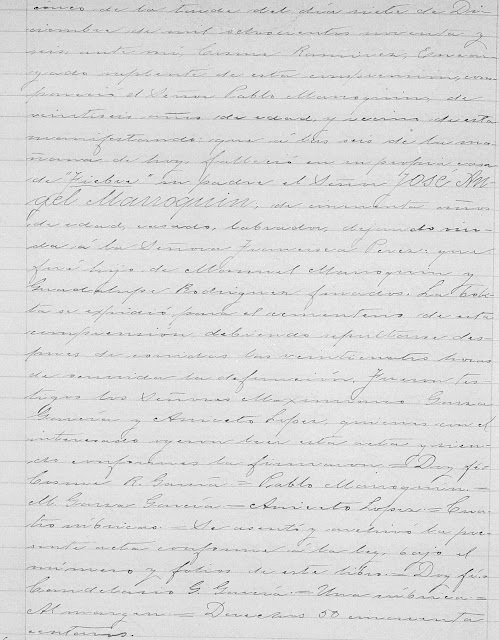 cinco de la tarde del día siete de Di-
ciembre de mil ochocientos noventa y
seis, ante mí, Cosme Ramirez, Encar-
gado suplente de esta comprension, com-
pareció el Señor Pablo Marroquin, de
veintiseis años de edad, y vecino de esta
manifestando: que á las seis de la ma-
ñana de hoy, falleció en su propia casa
de "Fiebre" su padre el Señor JOSÉ AN-
gel Marroquin, de cincuenta años
de edad, casado, labrador, dejando viu-
da á la Señora Francisca Perez: que
fué hijo de Manuel Marroquin y
Guadalupe Rodriguez finados. La bole-
ta se espidió para el cementerio de esta
comprension debiendo sepultarse des-
pues de corridas las veinticuatro horas
de acaecida la defuncion. Fueron tes-
tigos los Señores Maximiano Garza
García y Aniceto Lopez, quienes con el
interesado oyeron leer esta acta y sien-
do conformes la firmaron = Doy fé =
Cosme R. García = Pablo Marroquin =
M. Garza García = Aniceto Lopez = Cua-
tro rúbricas = Se asentó y archivó la pre-
sente acta conforme á la ley, bajo el
número y folios de este libro = Doy fé =
Candelario G. García = Una rúbrica =
Al margen = Derechos 50 cincuenta
centavos.